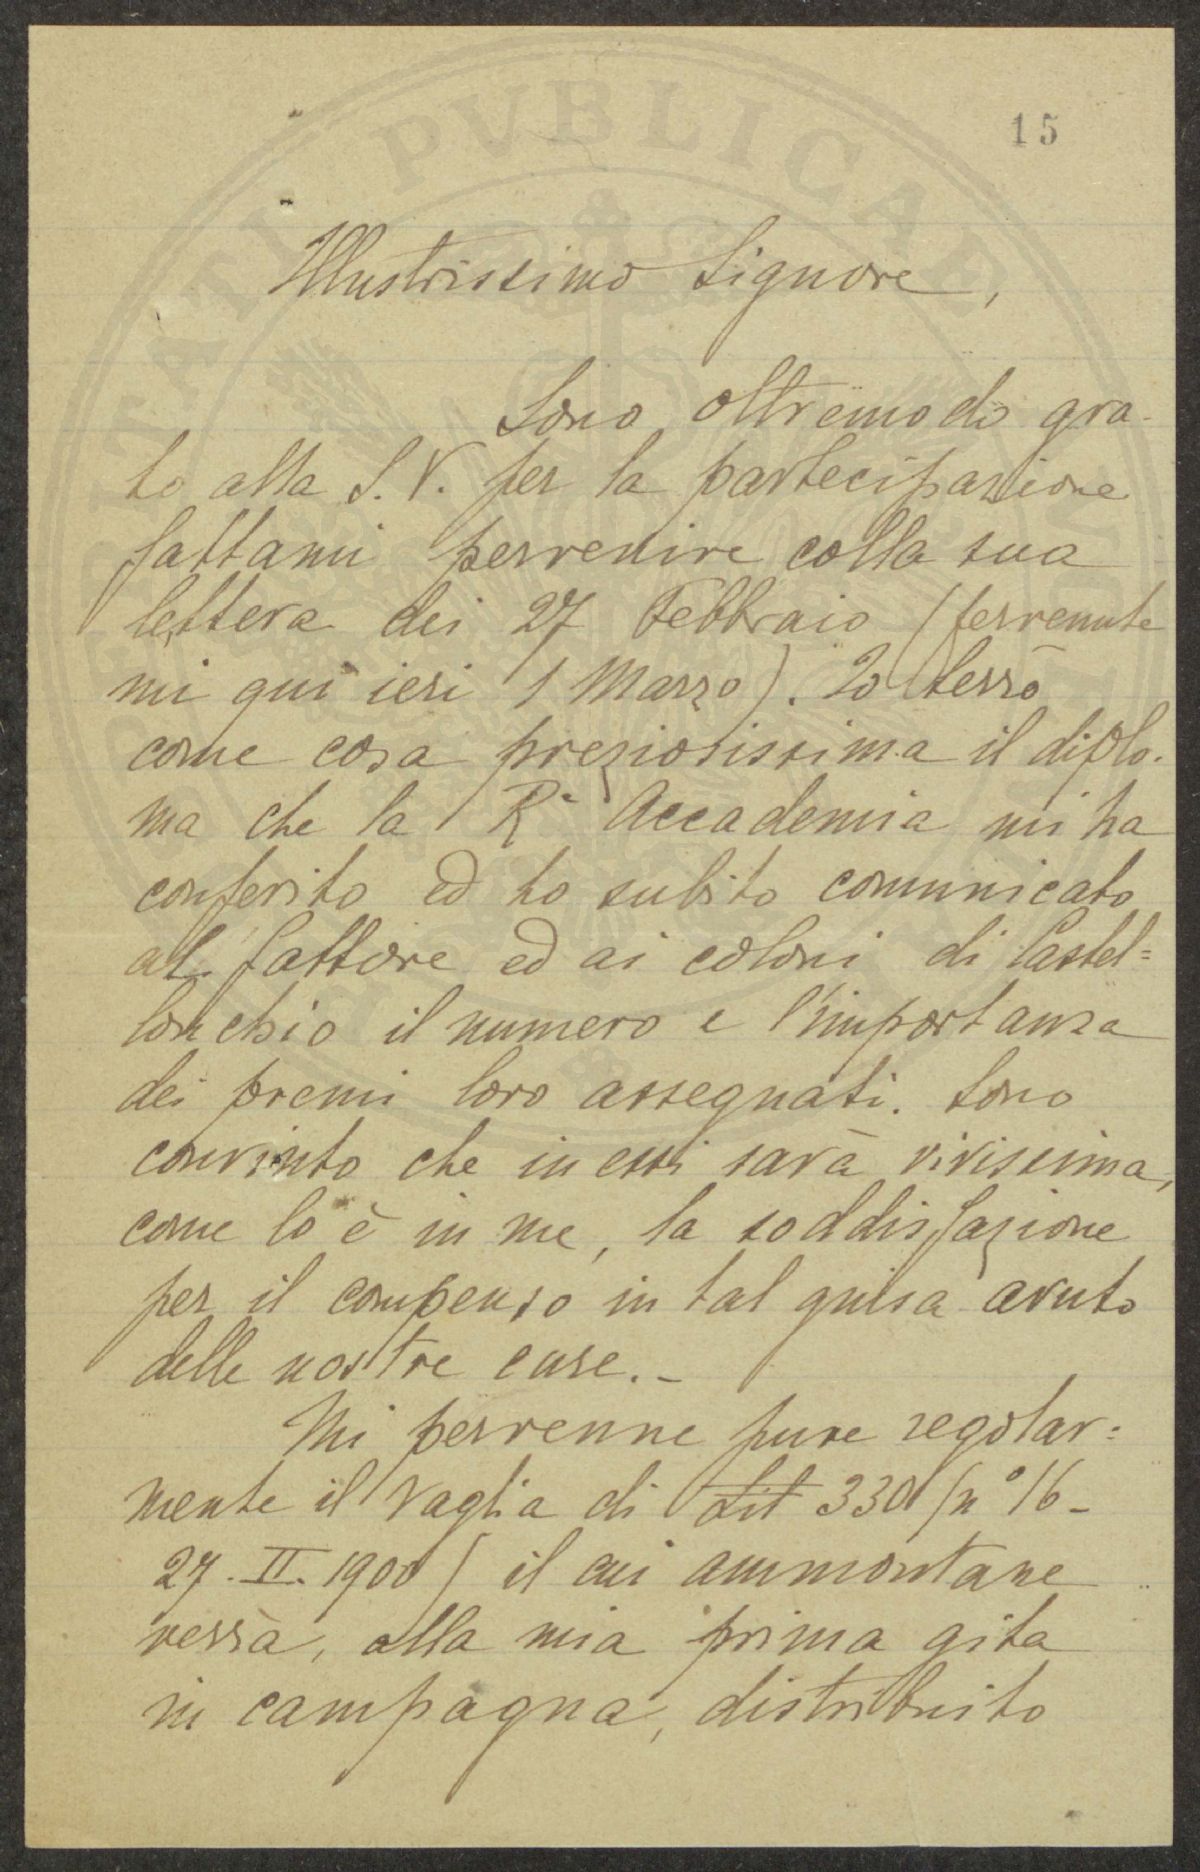 15
Illustrissimo Signore,
Sono oltremodo gra-
to alla S. V. per la partecipazione
fattami pervenire colla sua
lettera dei 27 Febbraio (pervenute
mi qui ieri 1 Marzo). Io terrò
come cosa preziosissima il diplo-
ma che la Rª Accademia mi ha
conferito ed ho subito comunicato
al fattore ed ai coloni di Castel=
lonchio il numero e l'importanza
dei premi loro assegnati. Sono
convinto che in essi sarà vivissima,
come lo è in me, la soddisfazione
per il compenso in tal guisa avuto
delle nostre cure.-
Mi pervenne pure regolar=
mente il vaglia di Lit 330 (n° 16-
27. II. 1900) il cui ammontare
verrà, alla mia prima gita
in campagna, distribuito